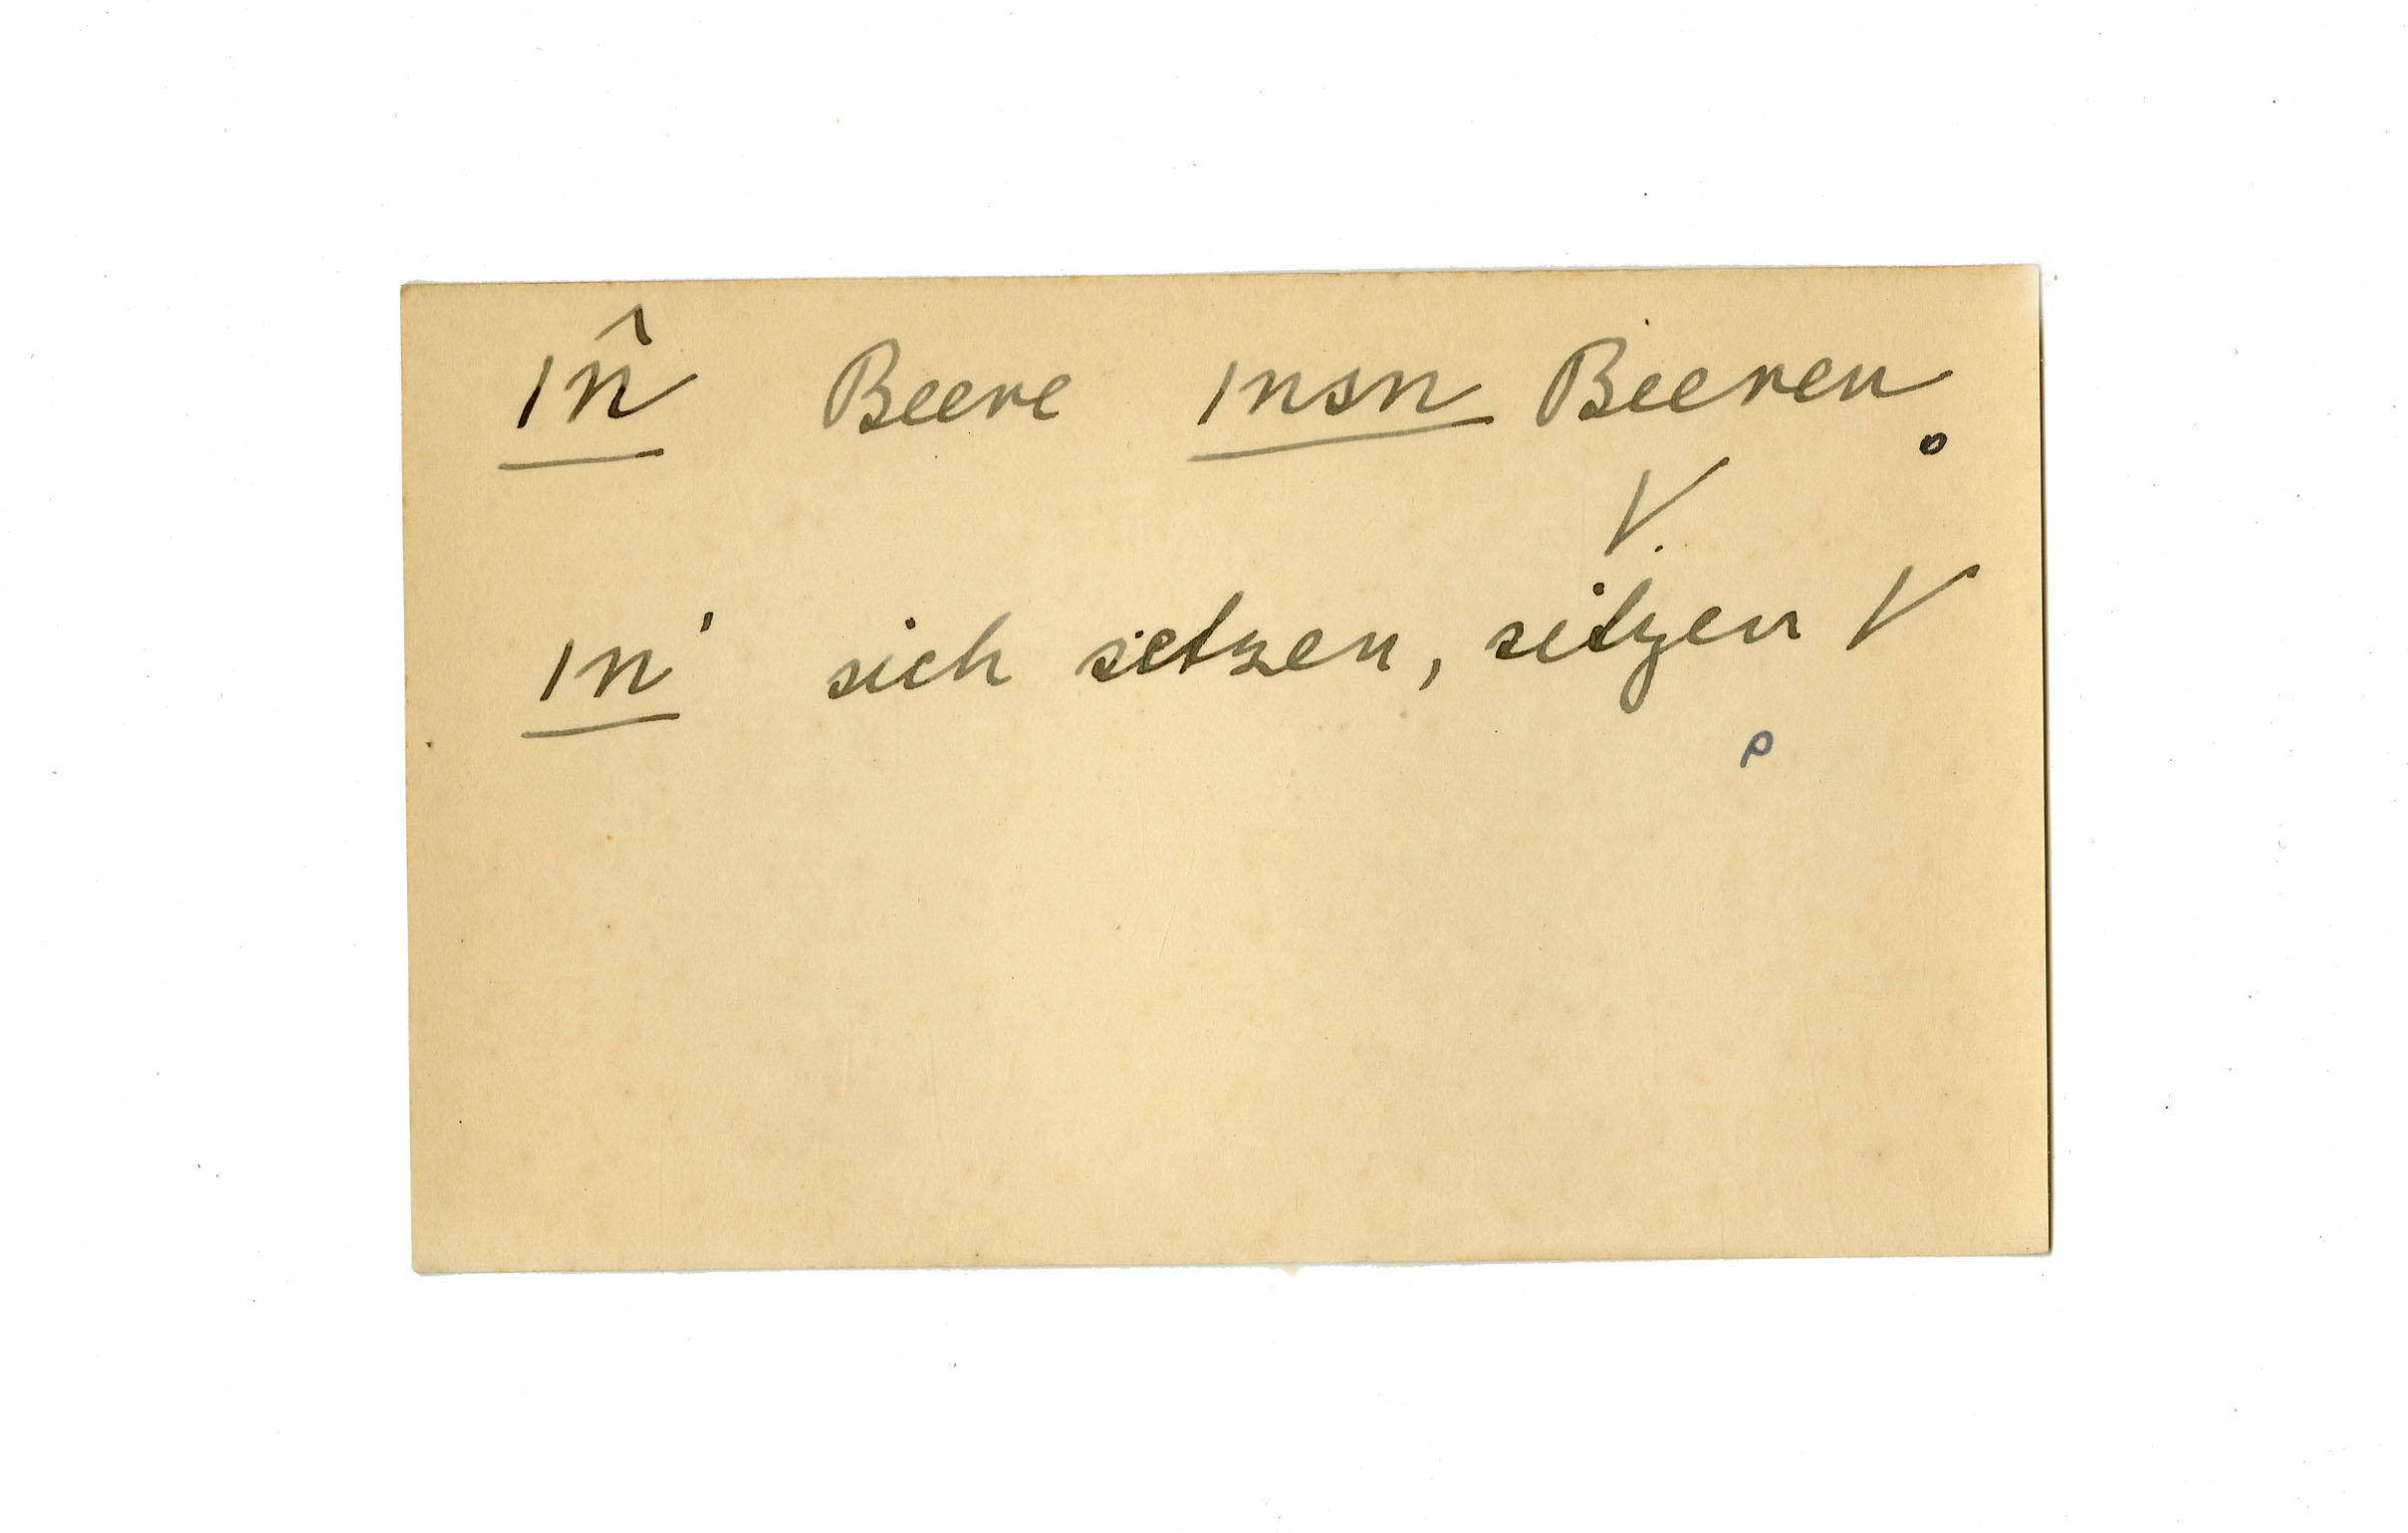 în Beere insn Beeren
in' sich setzen, sitzen